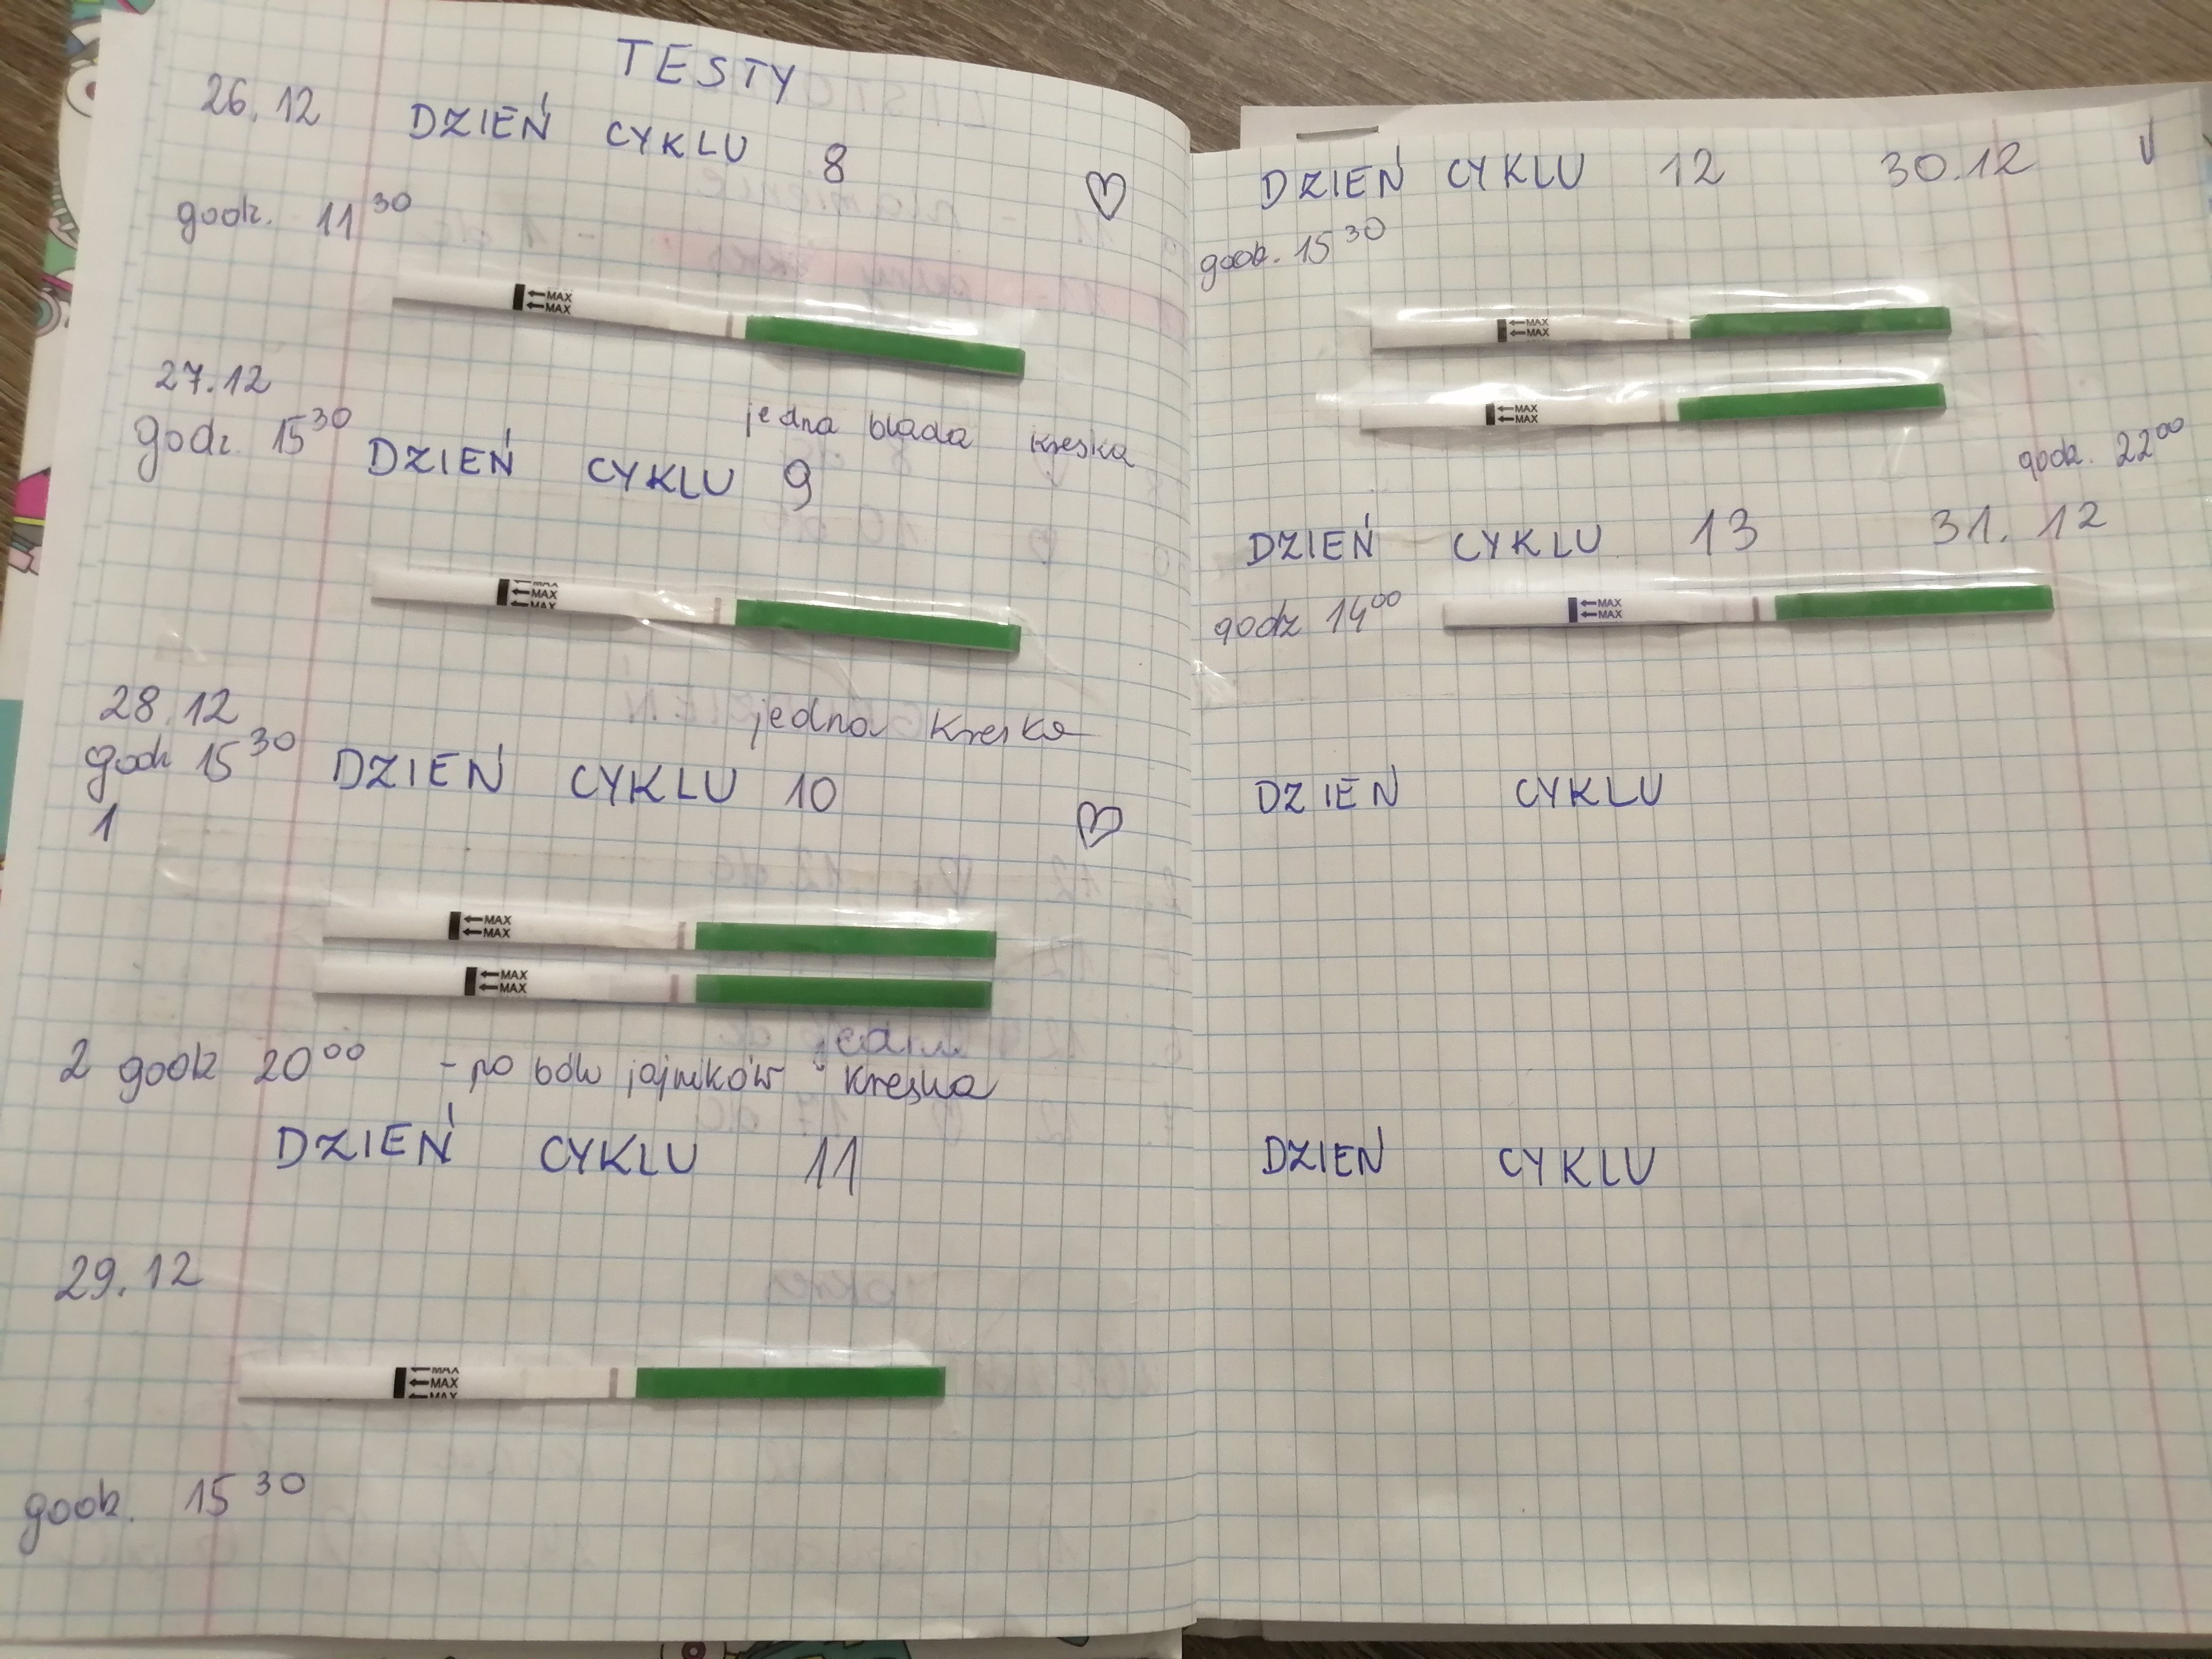 TESTY
26.12 DZIEŃ CYKLU 8
godz. 11 30
←MAX
←MAX
27.12
godz. 15 30
jedna blada kreska
DZIEŃ CYKLU 9
MAX
←MAX
←MAX
28.12
jedna kreska
godz 15 30 DZIEŃ CYKLU 10
1
←MAX
←MAX
←MAX
←MAX
2 godz 20 00 - po bólu jajników kreska
DZIEŃ CYKLU 11
29.12
←MAX
←MAX
←MAX
godz. 15 30
DZIEŃ CYKLU 12 30.12
godz. 15 30
←MAX
←MAX
←MAX
←MAX
godz. 22 00
DZIEŃ CYKLU 13 31.12
godz 14 00
←MAX
←MAX
DZIEŃ CYKLU
DZIEŃ CYKLU